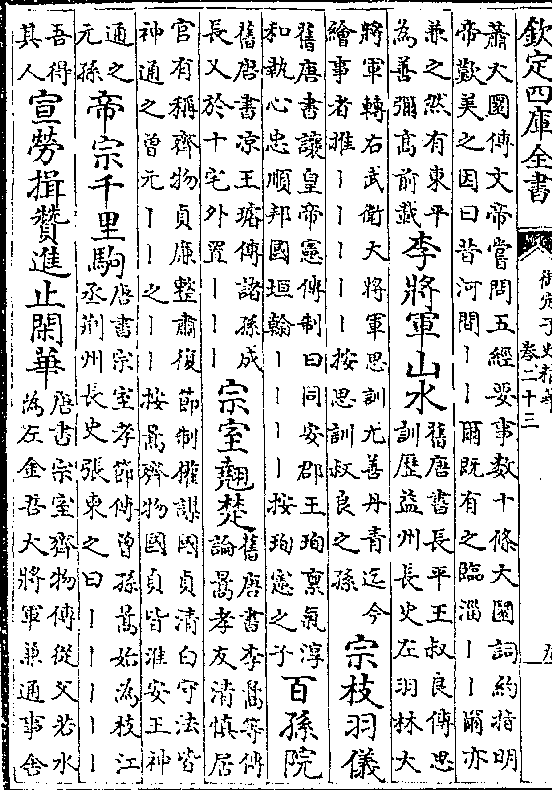 欽定四庫全書
御定子史精華
卷二十三
蕭大圜傳文帝嘗問五經要事數十條大圜詞約指明
帝歎美之因曰昔河間丨丨爾既有之臨淄丨丨爾亦
兼之然有東平
為善彌髙前載
李將軍山水
舊唐書長平王叔良傳思
訓歷益州長史左羽林大
將軍轉右武衛大將軍思訓尤善丹青迄今
繪事者推丨丨丨丨按思訓叔良之孫
宗枝羽儀
舊唐書讓皇帝憲傳制曰同安郡王珣禀氣淳
和執心忠順邦國垣翰丨丨丨丨按珣憲之子
百孫院
舊唐書凉王璿傳諸孫成
長又於十宅外置丨丨丨
宗室翹楚
舊唐書李暠等傳
論暠孝友清慎居
官有稱齊物貞廉整肅復節制權謀國貞清白守法皆
神通之曾元丨丨之丨丨按暠齊物國貞皆淮安王神
通之
元孫
帝宗千里駒
唐書宗室孝節傳曾孫暠始為枝江
丞荆州長史張柬之曰丨丨丨丨丨
吾得
其人
宣勞揖贊進止閑華
唐書宗室齊物傳從父若水
為左金吾大將軍兼通事舍